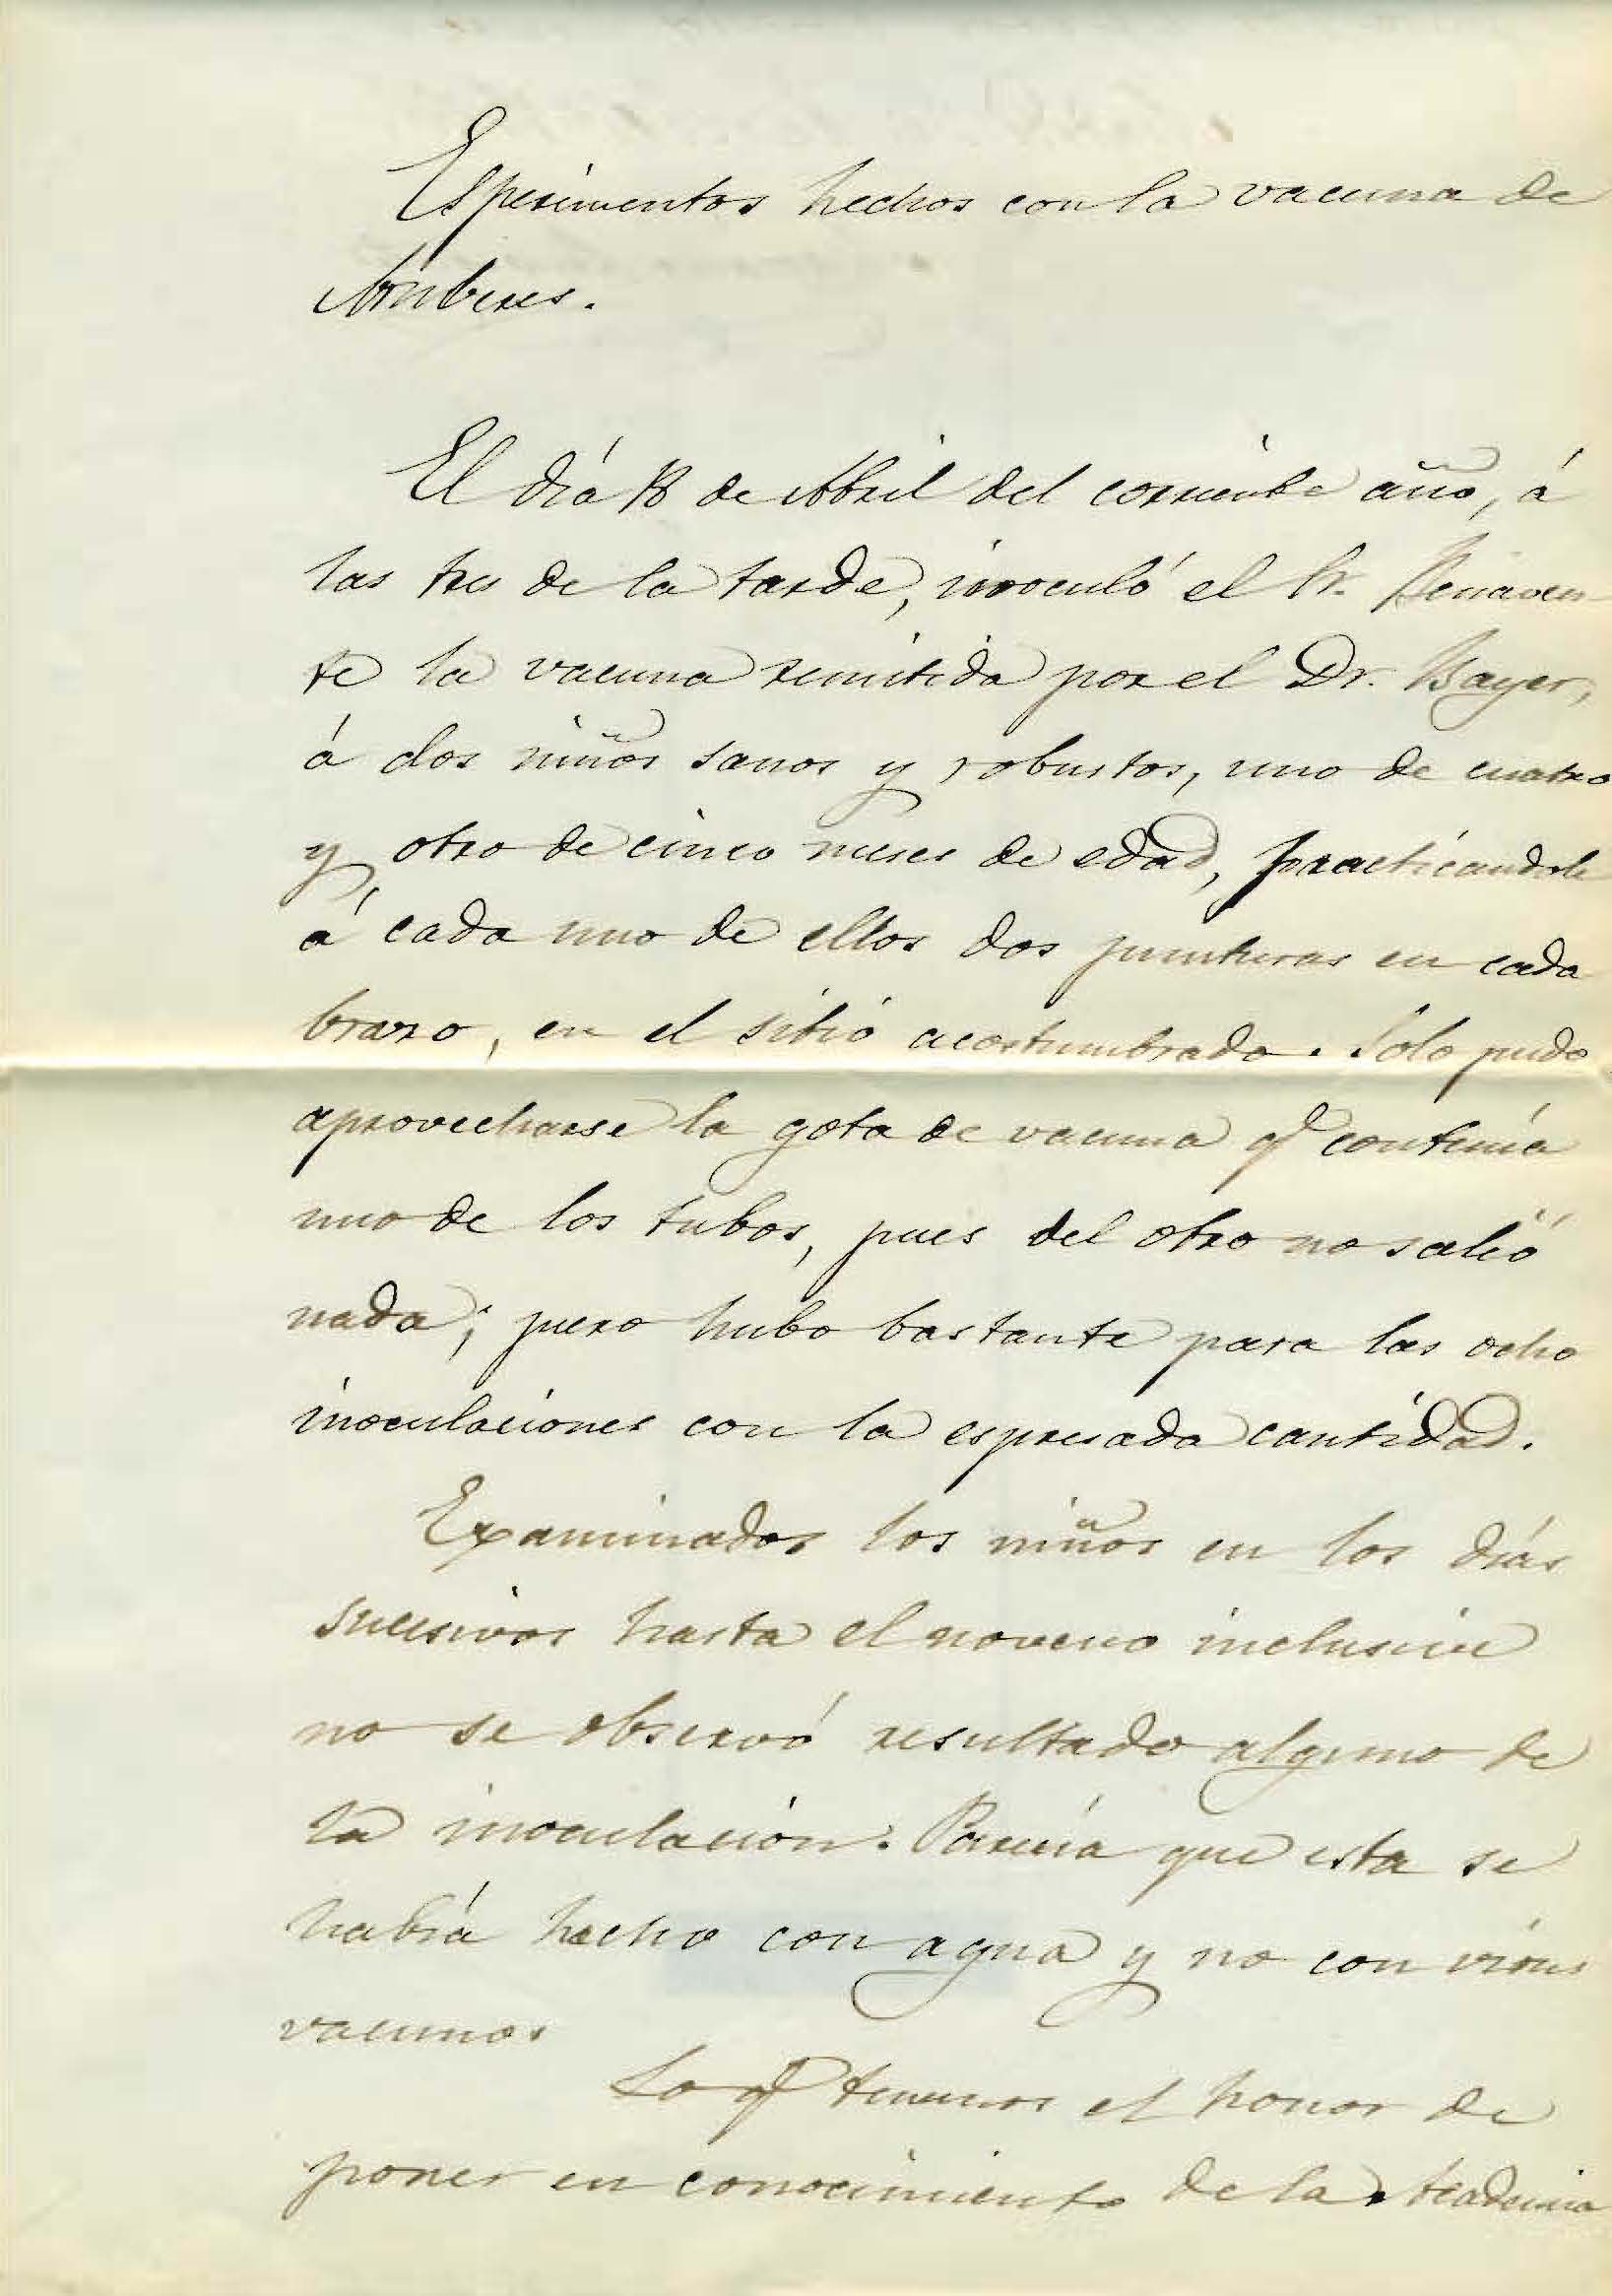 Esperimentos hechos con la vacuna de
Amberes.
El día 18 de Abril del corriente año, á
las tres de la tarde, inoculó el Sr. Benaven-
te la vacuna remitida por el Dr. Bayer,
á dos niños sanos y robustos, uno de cuatro
y otro de cinco meses de edad, practicandole
á cada uno de ellos dos punturas en cada
brazo, en el sitio acostumbrado. Sólo pudo
aprovecharse la gota de vacuna q contenía
uno de los tubos, pues del otro no salió
nada; pero hubo bastante para las ocho
inoculaciones con la espresada cantidad.
Examinados los niños en los días
sucesivos hasta el noveno inclusive
no se observó resultado alguno de
la inoculación. Parecía que esta se
había hecho con agua y no con virus
vacunos
Lo q tenemos el honor de
poner en conocimiento de la Academia